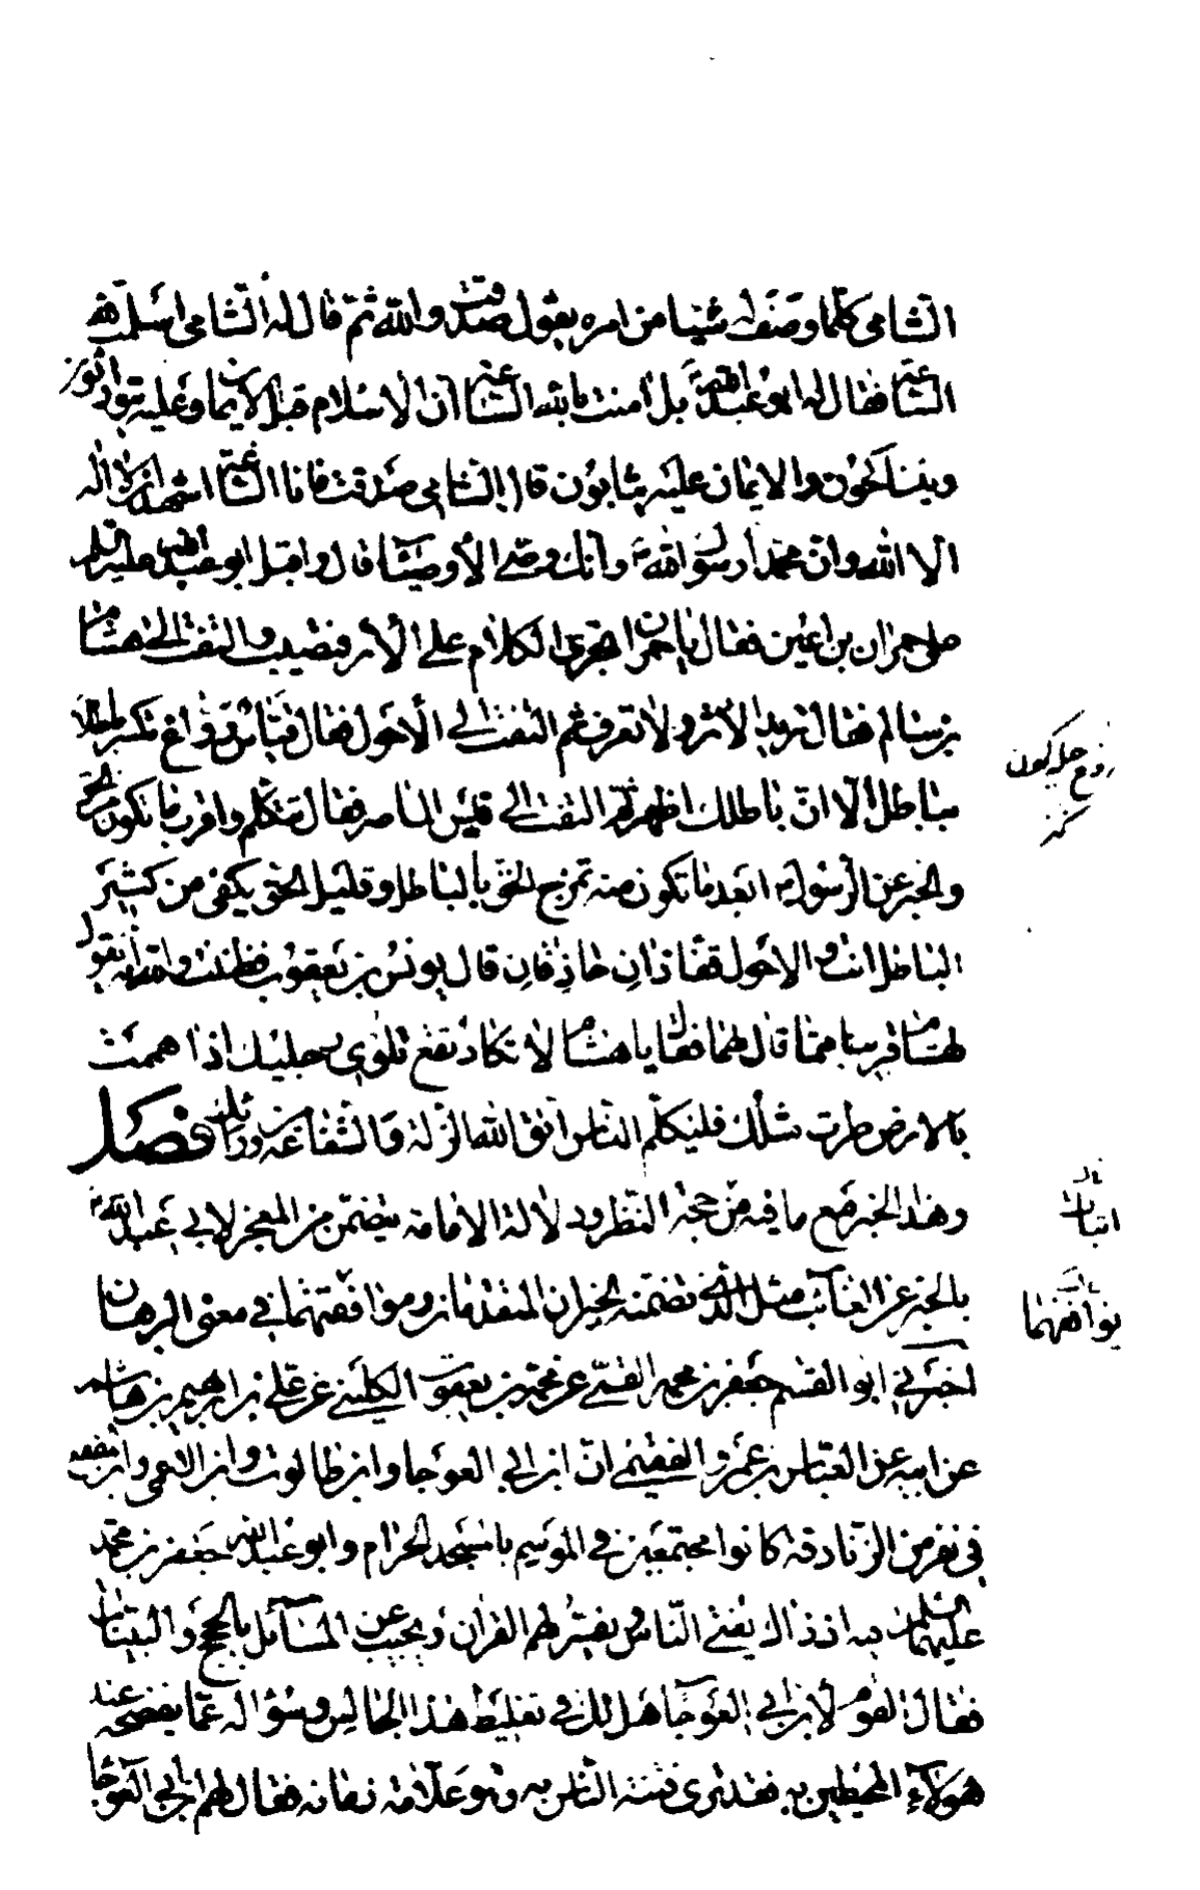 الشامي كلما وصف له شيئا من امره يقول صدقت والله ثم قال له الشامي اسلمت لله
الساعة فقال له ابو عبد الله بل امنت بالله الساعة ان الاسلام قبل الايمان وعليه يتوارثون
ويتناكحون والايمان عليه يثابون قال الشامي صدقت فانا الساعة اشهد ان لا اله
الا الله وان محمدا رسول الله وانك وصي الاوصياء قال واقبل ابو عبد الله عليه السلم
على حمران بن اعين فقال يا حمران تجري الكلام على الاثر فتصيب والتفت الى هشام
بن سالم فقال تريد الاثر ولا تعرف ثم التفت الى الاحول فقال قياس رواغ تكسر باطلا
بباطل الا ان باطلك اظهر ثم التفت الى قيس الماصر فقال تتكلم واقرب ما تكون من الحق
والخبر عن الرسول ابعد ما تكون منه تمزج الحق بالباطل وقليل الحق يكفي من كثير
الباطل انت والاحول قفازان حاذقان قال يونس بن يعقوب فظننت والله انه يقول
لهشام قريبا مما قال لهما فقال يا هشام لا تكاد تقع تلوي رجليك اذا هممت
بالارض طرت مثلك فليكلم الناس اتق الله الزلة والشفاعة من ورائك فصل
وهذا الخبر مع ما فيه من حجة النظر ودلالة الامامة يتضمن من المعجز لابي عبد الله
بالخبر عن الغائب مثل الذي تضمنه الخبران المتقدمان وموافقتهما في معنى البرهان
اخبرني ابو القسم جعفر بن محمد القمي عن محمد بن يعقوب الكليني عن علي بن ابراهيم بن هاشم
عن ابيه عن العباس بن عمرو الفقيمي ان ابن ابي العوجا وابن طالوت وابن الاعمى وابن المقفع
في نفر من الزنادقة كانوا مجتمعين في الموسم بالمسجد الحرام وابو عبد الله جعفر بن محمد
عليهما السلم فيه اذ ذاك يفتي الناس ويفسر لهم القران ويجيب عن المسائل بالحجج والبينات
فقال القوم لابن ابي العوجا هل لك في تغليط هذا الجالس وسؤاله عما يفضحه عند
هولاء المحيطين به فقد ترى فتنة الناس به وهو علامة زمانه فقال لهم ابن ابي العوجا
اثبات
يوافقهما